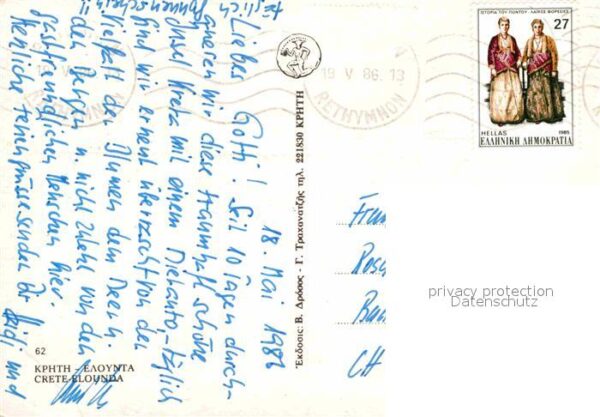 18. Mai 1986
Liebes Gotti! Seit 10 Tagen durch-
queren wir diese traumhaft schöne
Insel Kreta mit einem Mietauto, täglich
sind wir erneut überrascht von der
Vielfalt der Blumen dem Meer u.
den Bergen u. nicht zuletzt von den
gastfreundlichen Menschen hier.
Herzliche Feriengrüsse senden Dir
Heidi und
62
ΚΡΗΤΗ - ΕΛΟΥΝΤΑ
CRETE-ELOUNDA
Έκδοσις: Β. Δρόσος - Γ. Τραχανατζής τηλ. 221830 ΚΡΗΤΗ
19 V 86. 13
RETHYMNON
ΙΣΤΟΡΙΑ ΤΟΥ ΠΟΝΤΟΥ ΛΑΪΚΕΣ ΦΟΡΕΣΙΕΣ
27
HELLAS 1985
ΕΛΛΗΝΙΚΗ ΔΗΜΟΚΡΑΤΙΑ
CH
privacy protection
Datenschutz